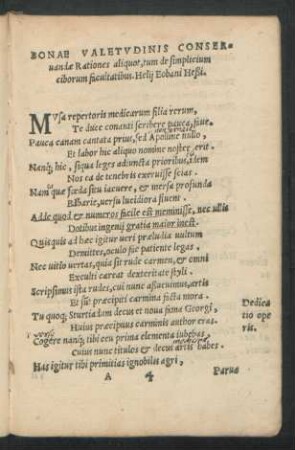 BONAE VALETVDINIS CONSER-
uandæ Rationes aliquot, tum de simplicium
ciborum facultatibus. Helij Eobani Heßi.
MVsa repertoris medicarum filia rerum,
Te duce conanti scribere pauca, fiue.
Pauca canam cantata prius, sed Apolline nullo,
Et labor hic aliquo nomine noster erit.
Nanq; hic, siqua leges adiuncta prioribus, idem
Nos ea de tenebris exeruisse scias.
Nam quæ fœda situ iacuere, & mersa profunda
Barbarie, uersu lucidiora fluent.
Adde quod & numeros facile est meminisse, nec ullis
Dotibus ingenij gratia maior inest.
Quisquis ad hæc igitur ueri præludia uultum
Demittes, oculo fac patiente legas.
Nec uitio uertas, quia sit rude carmen, & omni
Exculti careat dexteritate styli.
Scripsimus ista rudes, cui nunc assueuimus, artis
Et sic præcipiti carmina ficta mora.
Tu quoq; Sturtiadum decus et noua fama Georgi,
Huius præcipuus carminis author eras.
Cogere nanq; tibi ceu prima elementa iubebas,
Cuius nunc titulos & decus artis habes.
Has igitur tibi primitias ignobilis agri,
Dedica
tio ope
ris.
A 4
Parua